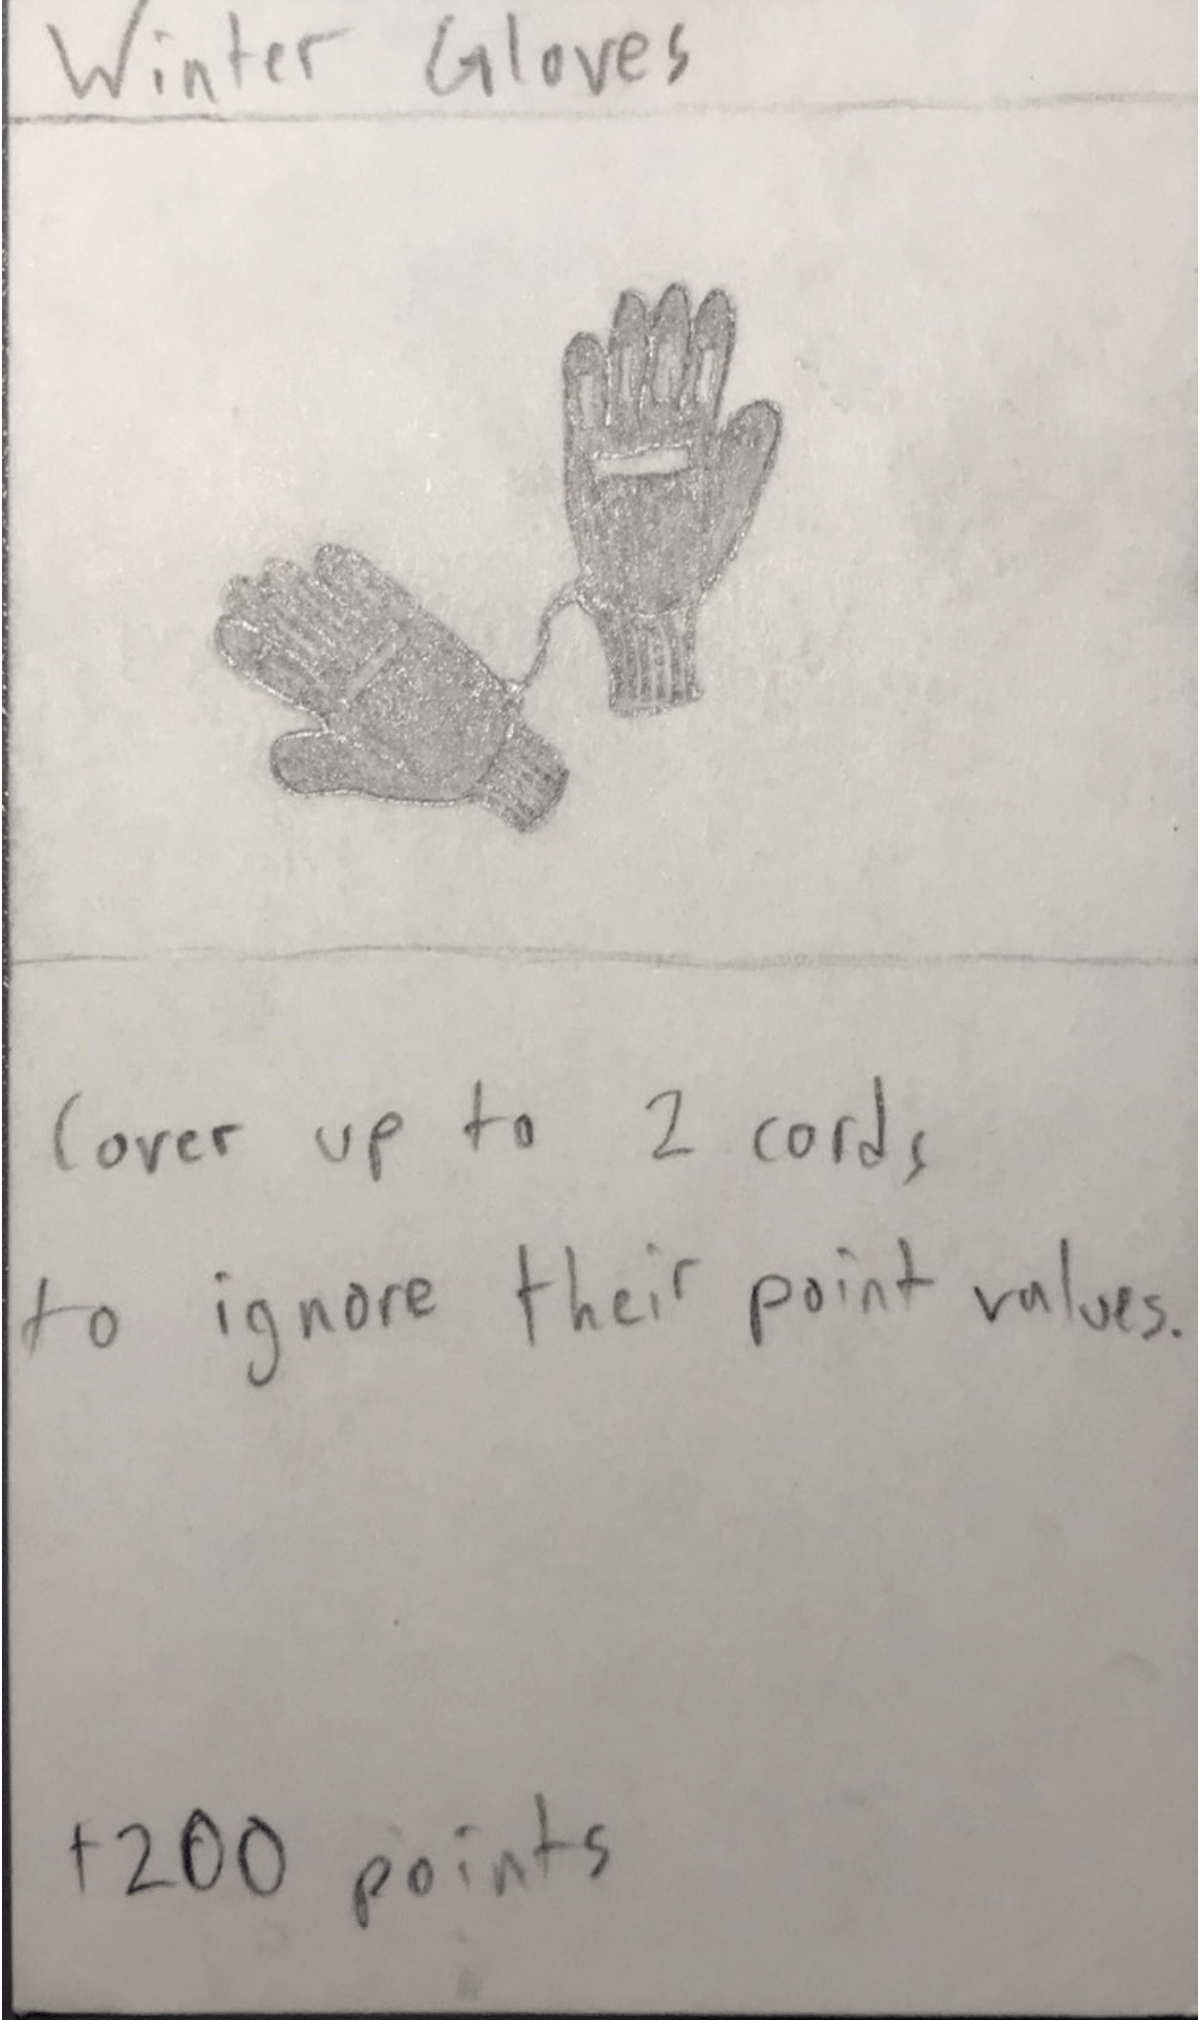 Winter Gloves
Cover up to 2 cards
to ignore their point values.
+200 points